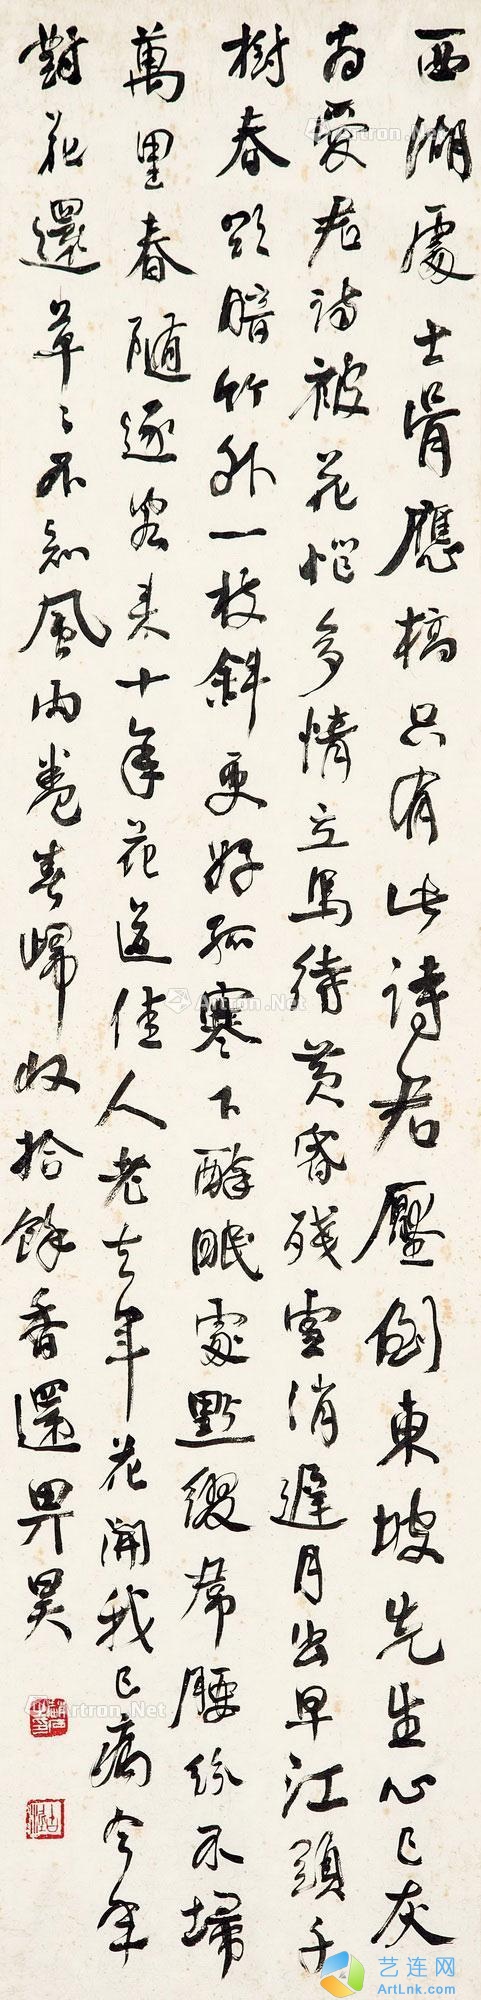 西湖處士骨應槁只有此詩君壓倒東坡先生心已灰
為愛君詩被花惱多情立馬待黃昏殘雪消遲月出早江頭千
樹春欲暗竹外一枝斜更好孤寒下醉眠處點綴帬腰紛不埽
萬里春隨逐客来十年花送佳人老去年花開我已病今年
對花還草々不知風雨卷春歸收拾餘香還畀昊
Artron.Net
Artron.Net
Artron.Net
艺连网
ArtLink.com